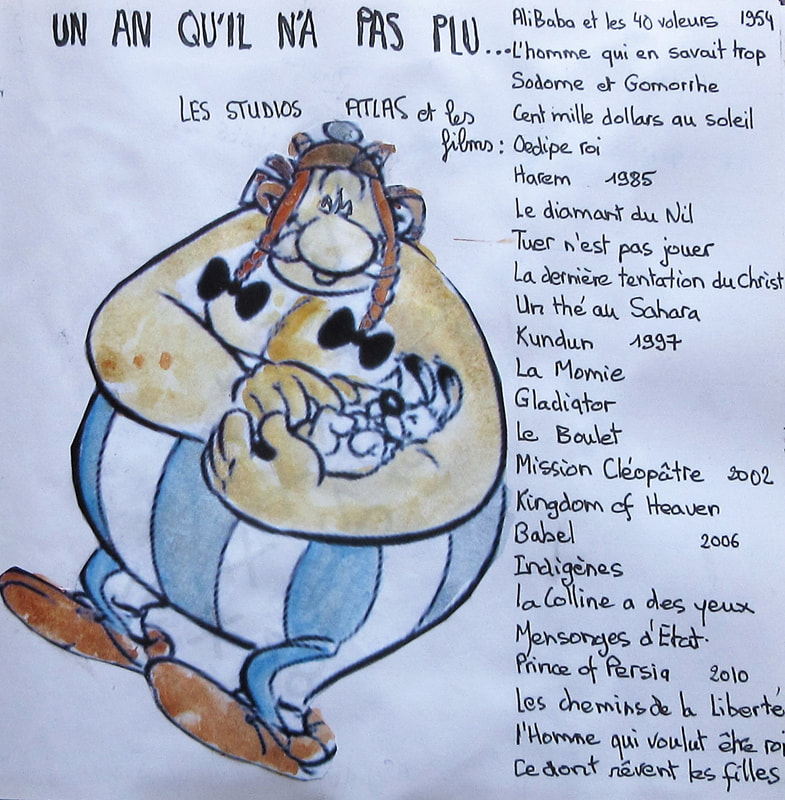 UN AN QU'IL N'A PAS PLU...
LES STUDIOS ATLAS et les
films:
AliBaba et les 40 voleurs 1954
L'homme qui en savait trop
Sodome et Gomorrhe
Cent mille dollars au soleil
Oedipe roi
Harem 1985
Le diamant du Nil
Tuer n'est pas jouer
La dernière tentation du Christ
Un thé au Sahara
Kundun 1997
La Momie
Gladiator
Le Boulet
Mission Cléopâtre 2002
Kingdom of Heaven
Babel 2006
Indigènes
la Colline a des yeux
Mensonges d'Etat.
Prince of Persia 2010
Les chemins de la Liberté
l'Homme qui voulut être roi
Ce dont rêvent les filles